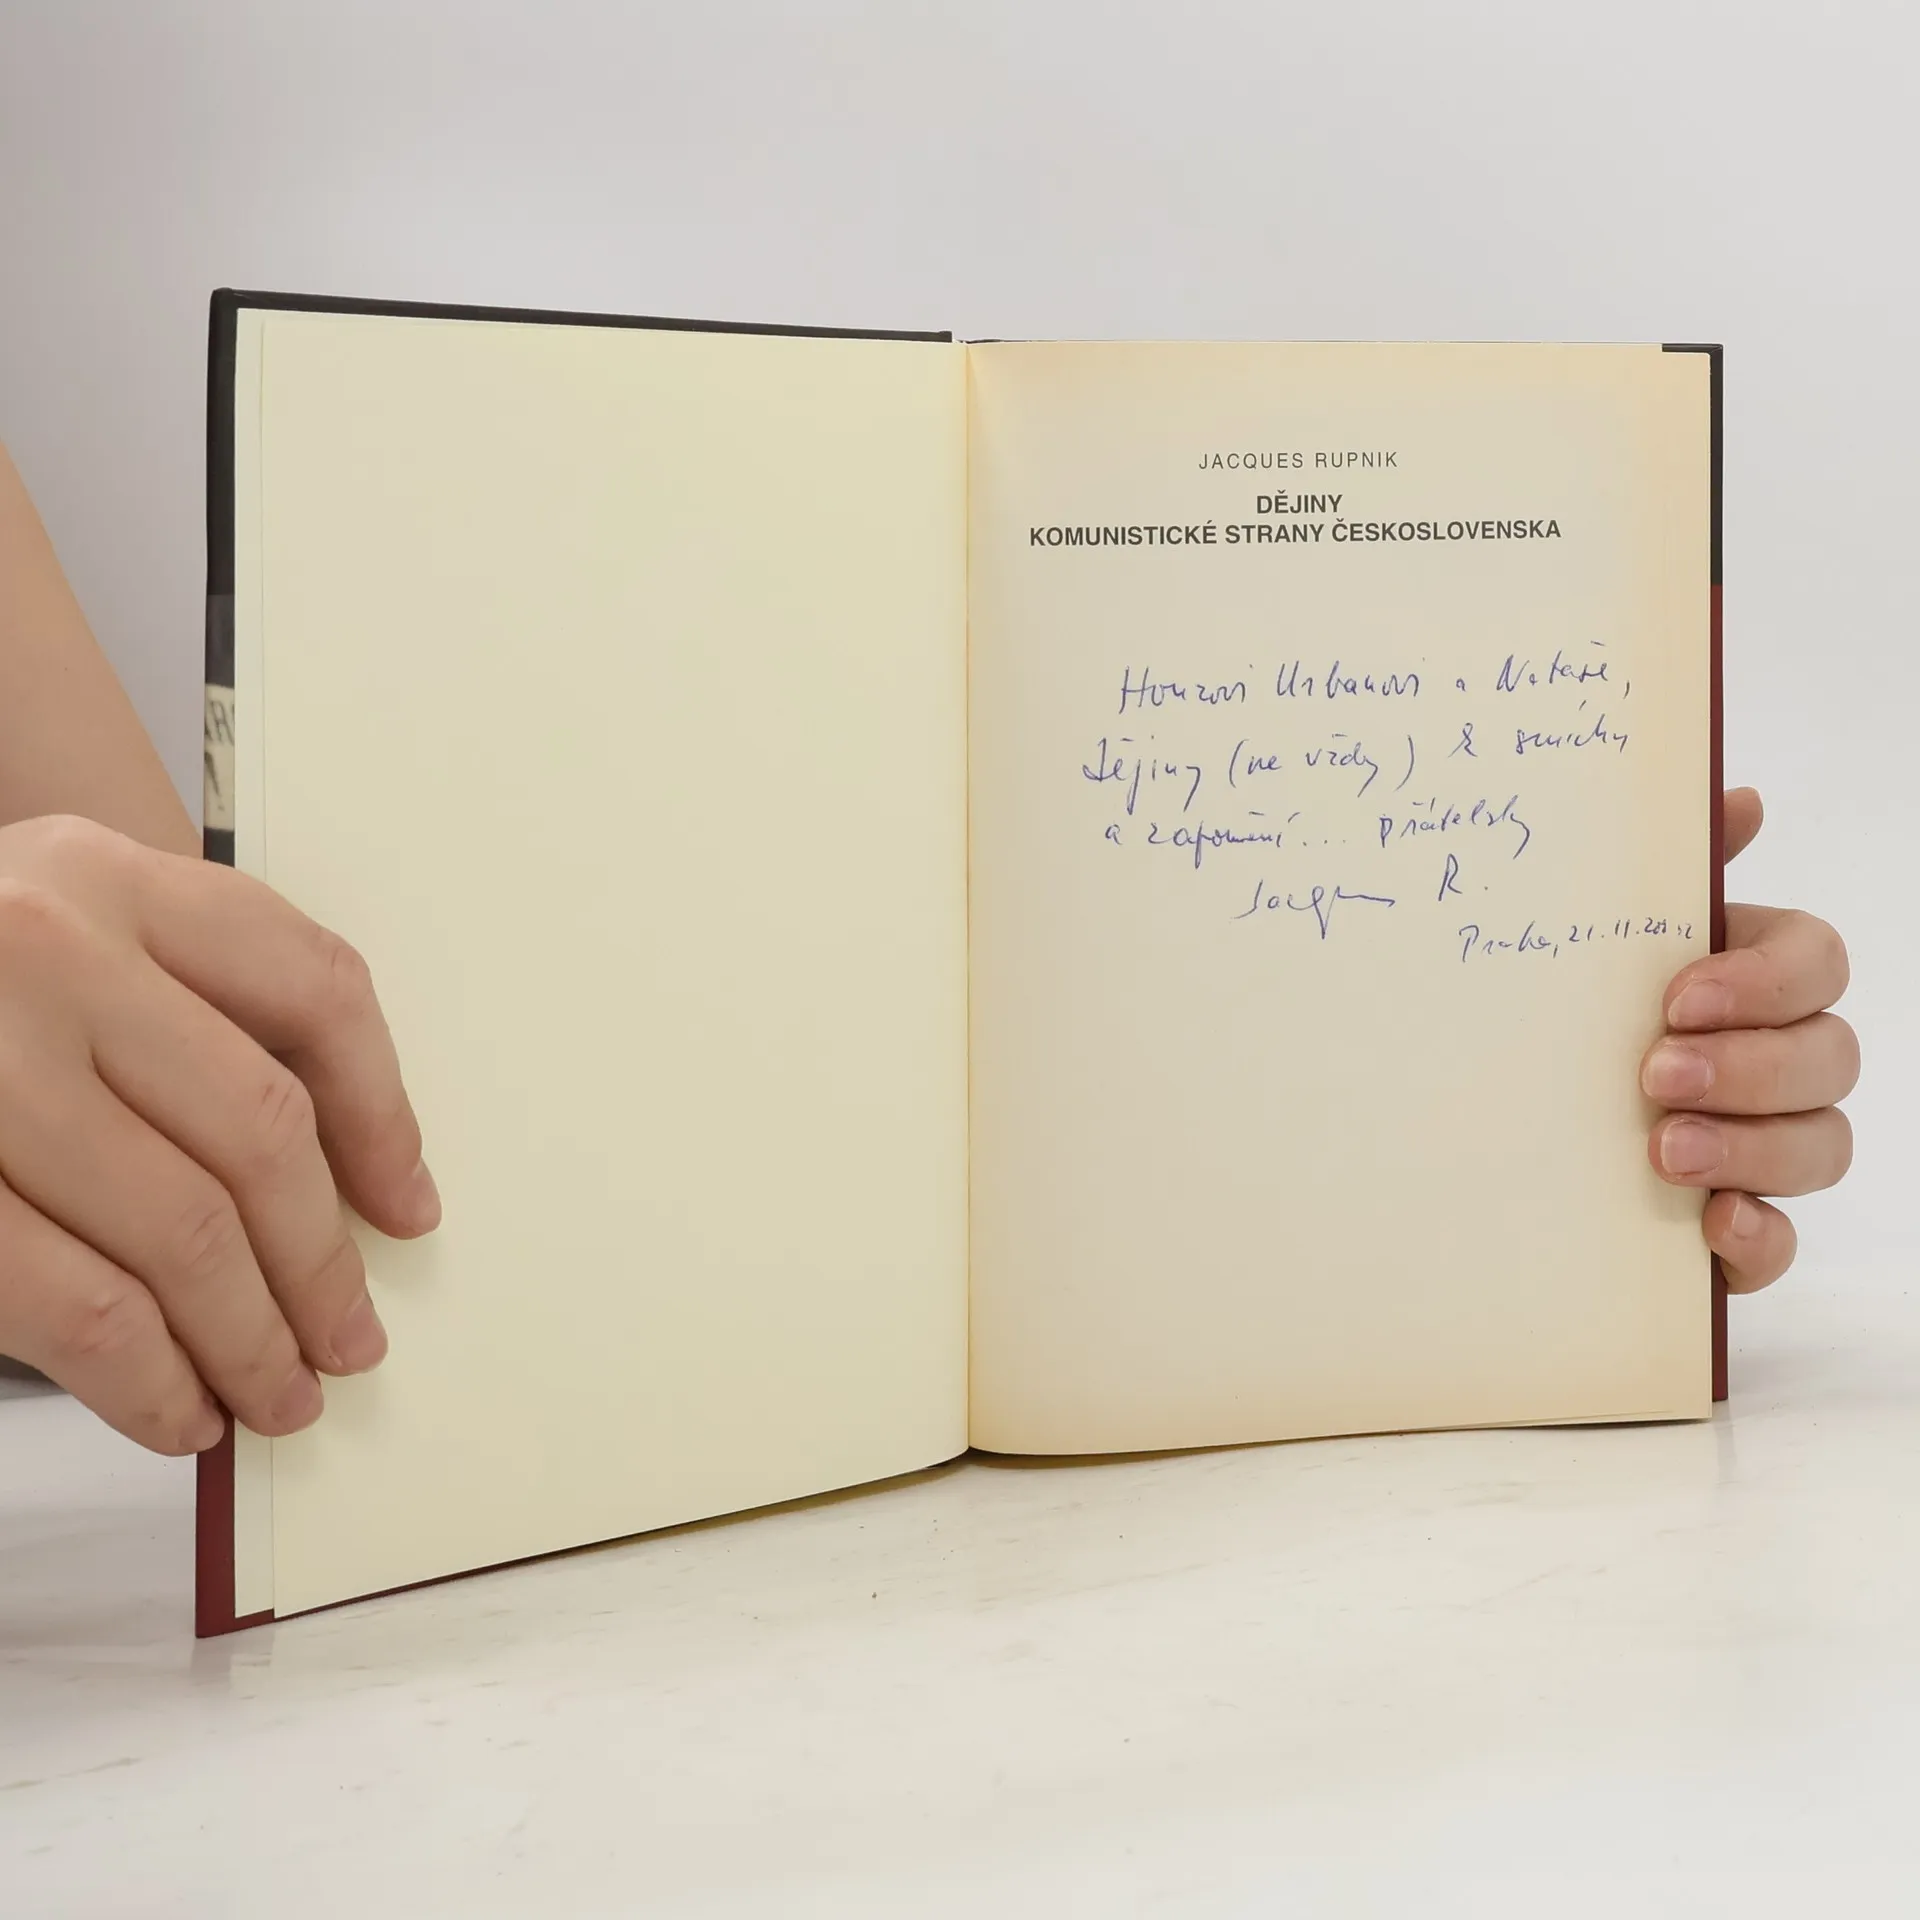 JACQUES RUPNIK
DĚJINY
KOMUNISTICKÉ STRANY ČESKOSLOVENSKA
Honzovi Urbanovi a Nataše,
Dějiny (ne vždy) k smíchu
a zapomění... přátelsky
Jacques R.
Praha, 21.11.